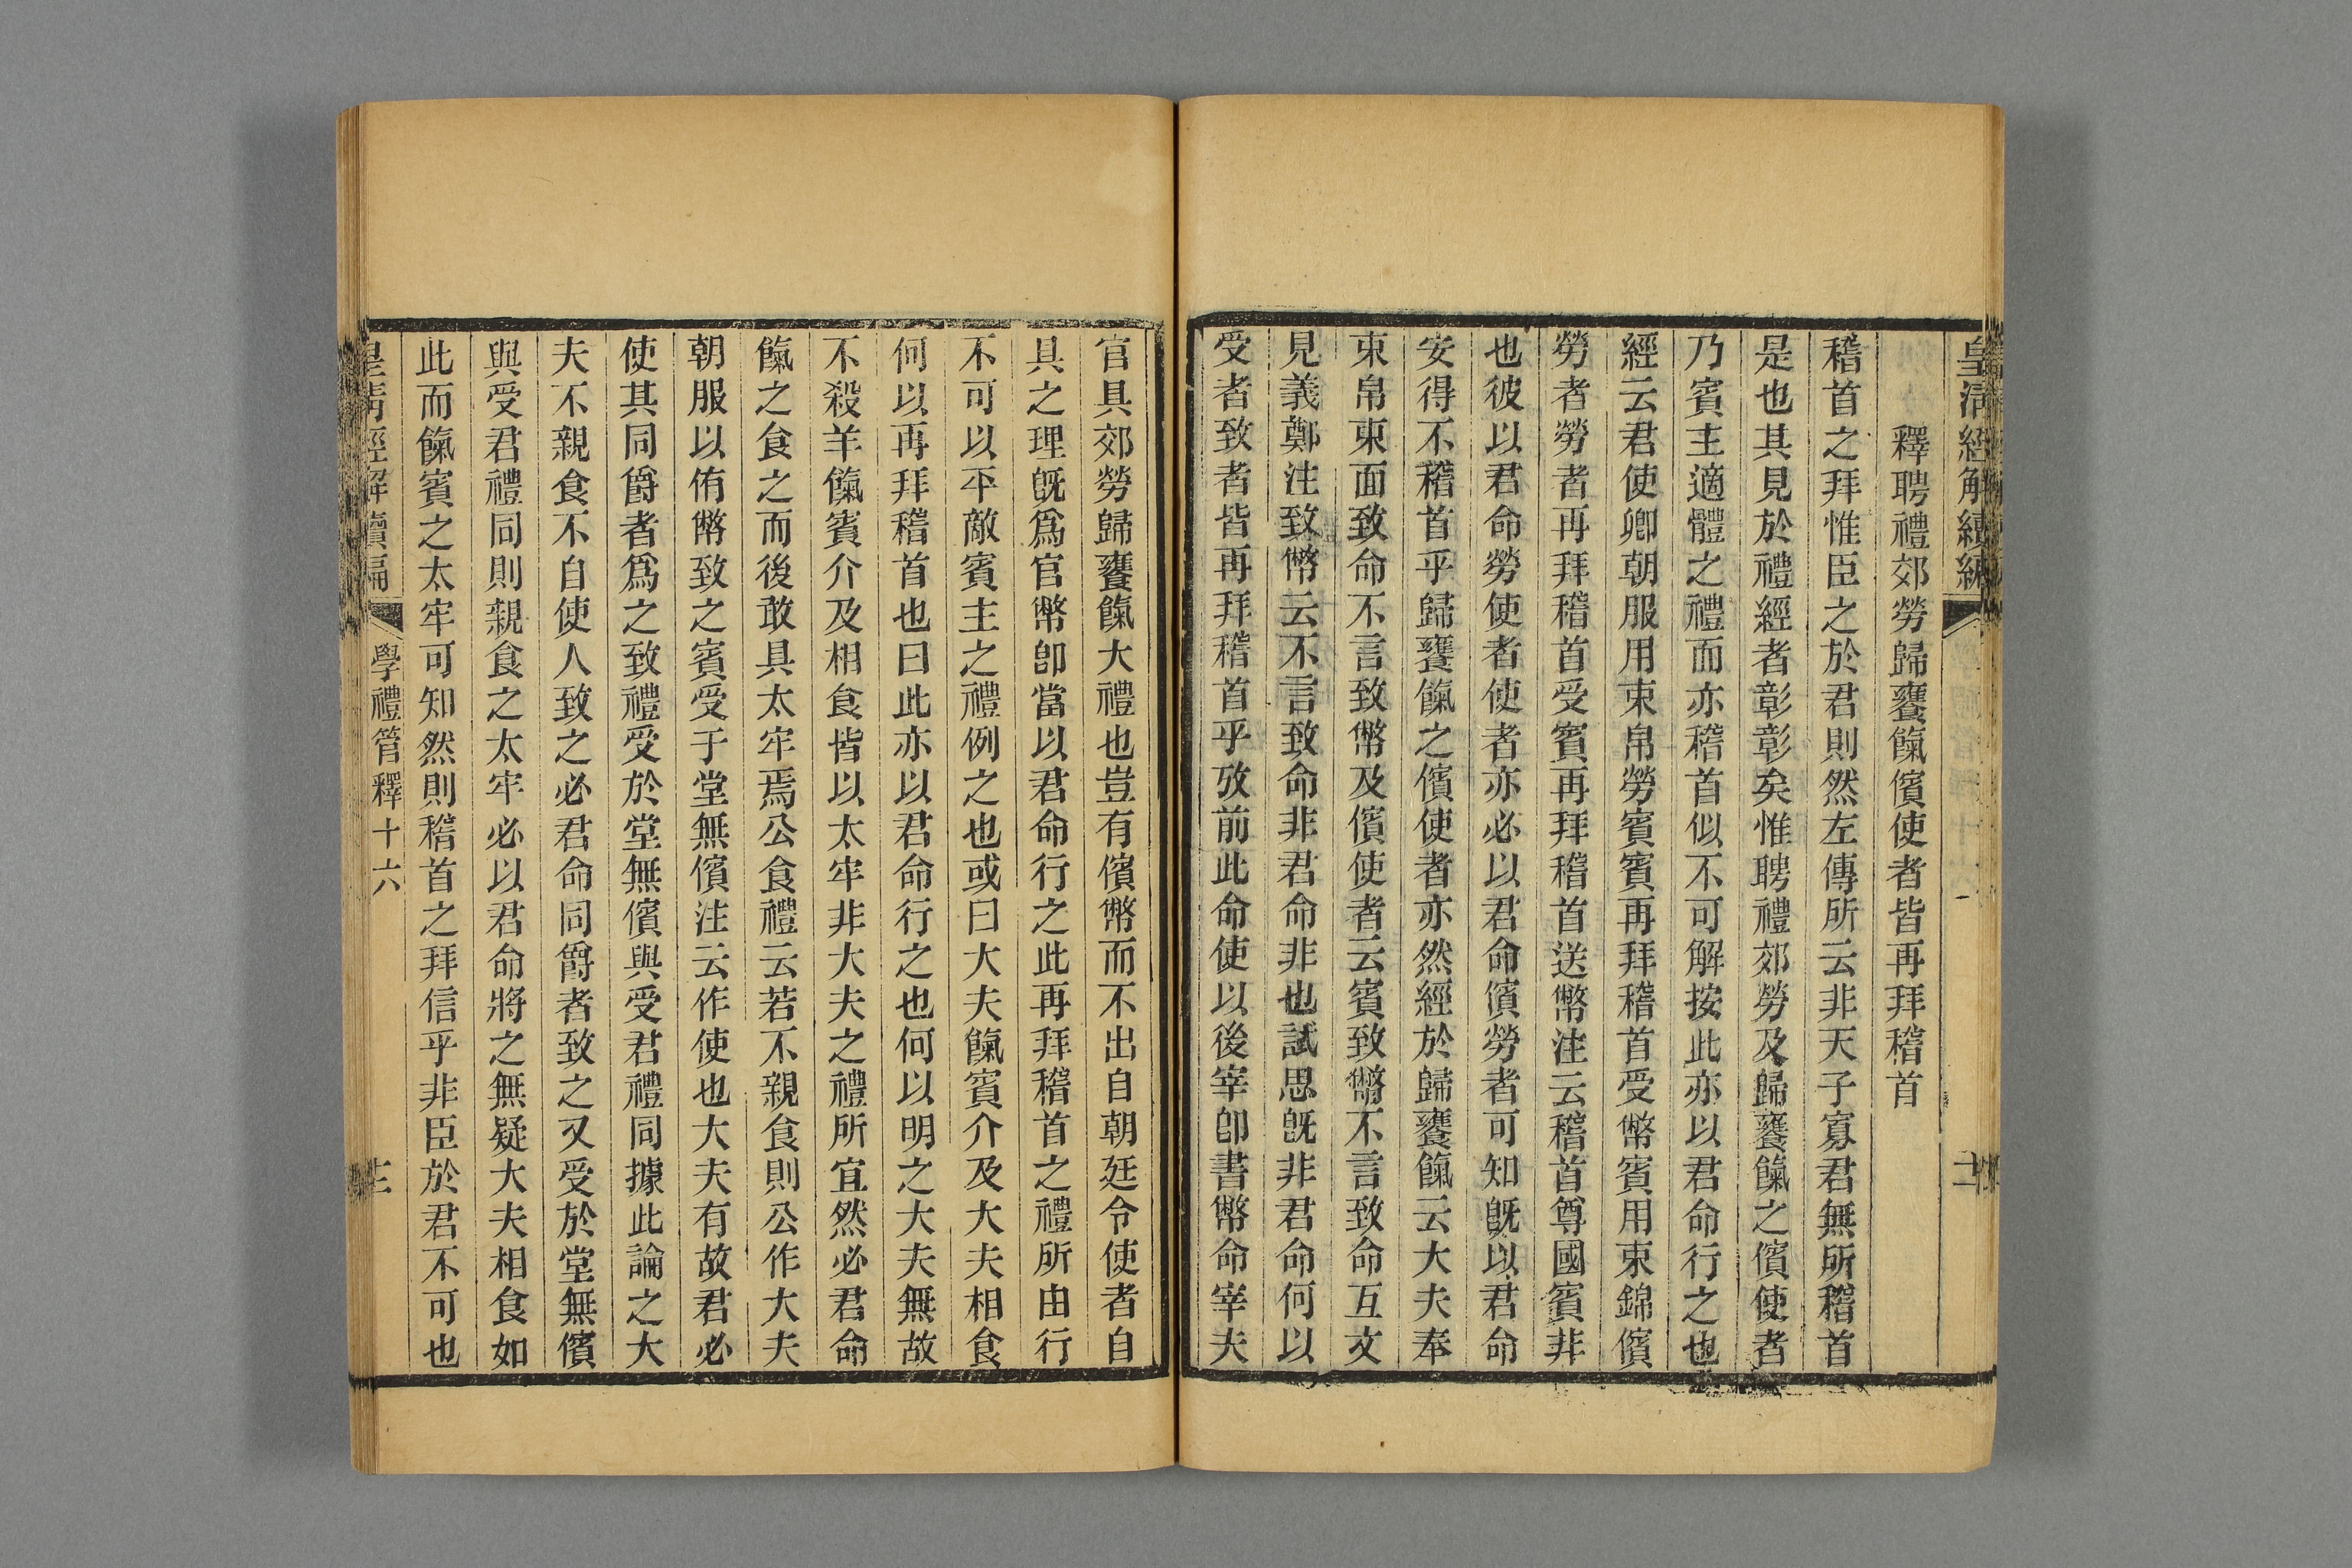 皇清經解續編
釋聘禮郊勞歸饔餼儐使者皆再拜稽首
稽首之拜惟臣之於君則然左傳所云非天子寡君無所稽首
是也其見於禮經者彰彰矣惟聘禮郊勞及歸饔餼之儐使者
乃賓主適體之禮而亦稽首似不可解按此亦以君命行之也
經云君使卿朝服用束帛勞賓賓再拜稽首受幣賓用束錦儐
勞者勞者再拜稽首受賓再拜稽首送幣注云稽首尊國賓非
也彼以君命勞使者使者亦必以君命儐勞者可知旣以君命
安得不稽首乎歸饔餼之儐使者亦然經於歸饔餼云大夫奉
束帛東面致命不言致幣及儐使者云賓致幣不言致命互文
見義鄭注致幣云不言致命非君命非也試思旣非君命何以
受者致者皆再拜稽首乎攷前此命使以後宰卽書幣命宰夫
官具郊勞歸饔餼大禮也豈有儐幣而不出自朝廷令使者自
具之理旣爲官幣卽當以君命行之此再拜稽首之禮所由行
不可以平敵賓主之禮例之也或曰大夫餼賓介及大夫相食
何以再拜稽首也曰此亦以君命行之也何以明之大夫無故
不殺羊餼賓介及相食皆以太牢非大夫之禮所宜然必君命
餼之食之而後敢具太牢焉公食禮云若不親食則公作大夫
朝服以侑幣致之賓受于堂無儐注云作使也大夫有故君必
使其同爵者爲之致禮受於堂無儐與受君禮同據此論之大
夫不親食不自使人致之必君命同爵者致之又受於堂無儐
與受君禮同則親食之太牢必以君命將之無疑大夫相食如
此而餼賓之太牢可知然則稽首之拜信乎非臣於君不可也
皇清經解續編
學禮管釋十六